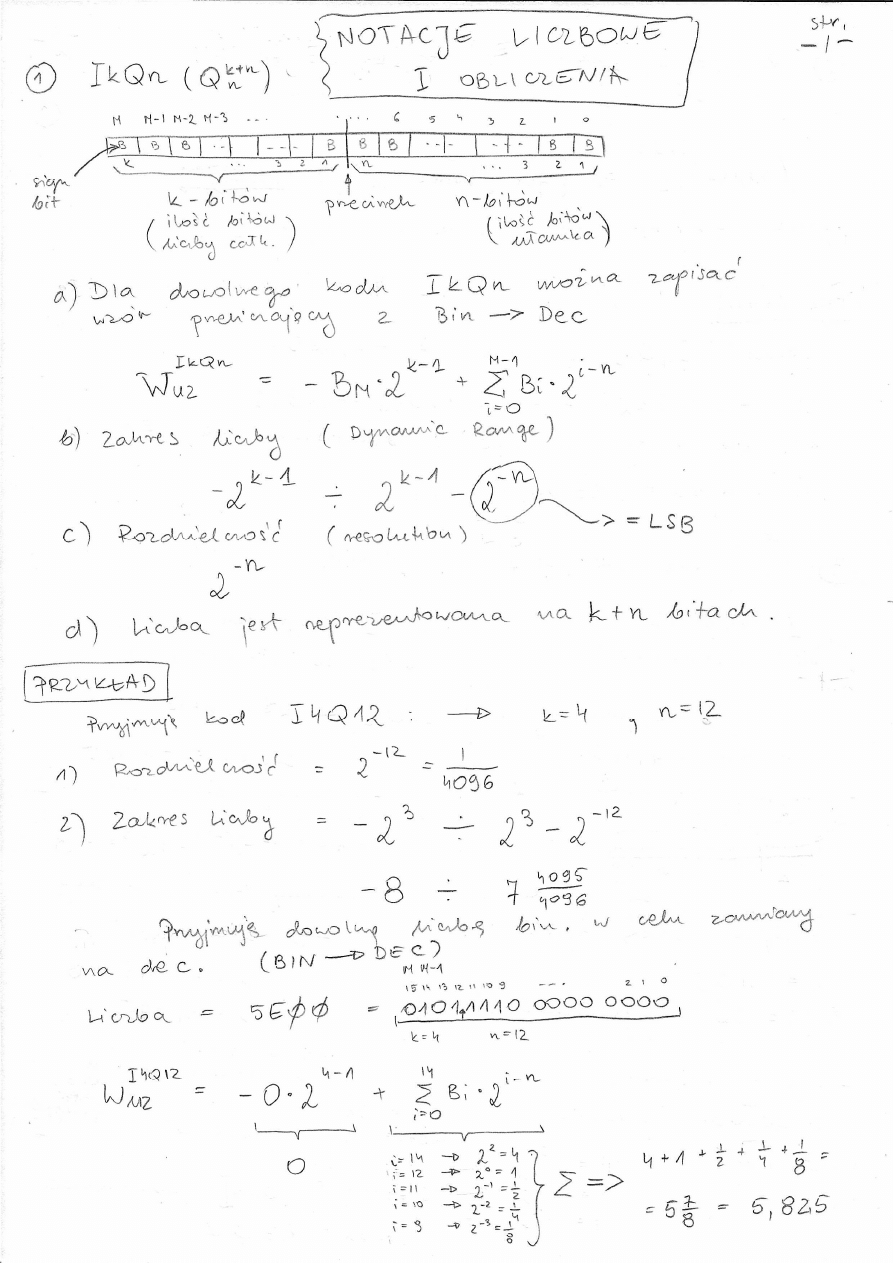 NOTACJE LICZBOWE
I OBLICZENIA
str.
-1-
① IkQn (Qₙᵏ⁺ⁿ)
M M-1 M-2 M-3 ... ... 6 5 4 3 2 1 0
B B B ... --- B B B ... -- B B
k ... 3 2 1 n ... 3 2 1
sign
bit
k-bitów
(ilość bitów
liczby całk.)
przecinek
n-bitów
(ilość bitów
ułamka)
a) Dla dowolnego kodu IkQn można zapisać
wzór przeliczający z Bin → Dec
W_{U2}^{IkQn} = - B_M · 2^{k-1} + Σ_{i=0}^{M-1} Bi · 2^{i-n}
b) Zakres liczby (Dynamic Range)
-2^{k-1} ÷ 2^{k-1} - 2^{-n}
→ = LSB
c) Rozdzielczość (resolution)
2^{-n}
d) Liczba jest reprezentowana na k+n bitach.
PRZYKŁAD
Przyjmuję kod I4Q12 : → k=4 , n=12
1) Rozdzielczość = 2^{-12} = 1/4096
2) Zakres liczby = -2³ ÷ 2³ - 2^{-12}
-8 ÷ 7 4095/4096
Przyjmuję dowolną liczbę bin. w celu zamiany
na dec. (BIN → DEC)
M M-1
15 14 13 12 11 10 9 --- 2 1 0
Liczba = 5E00 = 0101,1110 0000 0000
k=4 n=12
W_{U2}^{I4Q12} = -0·2^{4-1} + Σ_{i=0}^{14} Bi · 2^{i-n}
0
i=14 → 2² = 4
i=12 → 2⁰ = 1
i=11 → 2⁻¹ = 1/2
i=10 → 2⁻² = 1/4
i=9 → 2⁻³ = 1/8
Σ =>
4+1+1/2+1/4+1/8 =
= 5 7/8 = 5,825